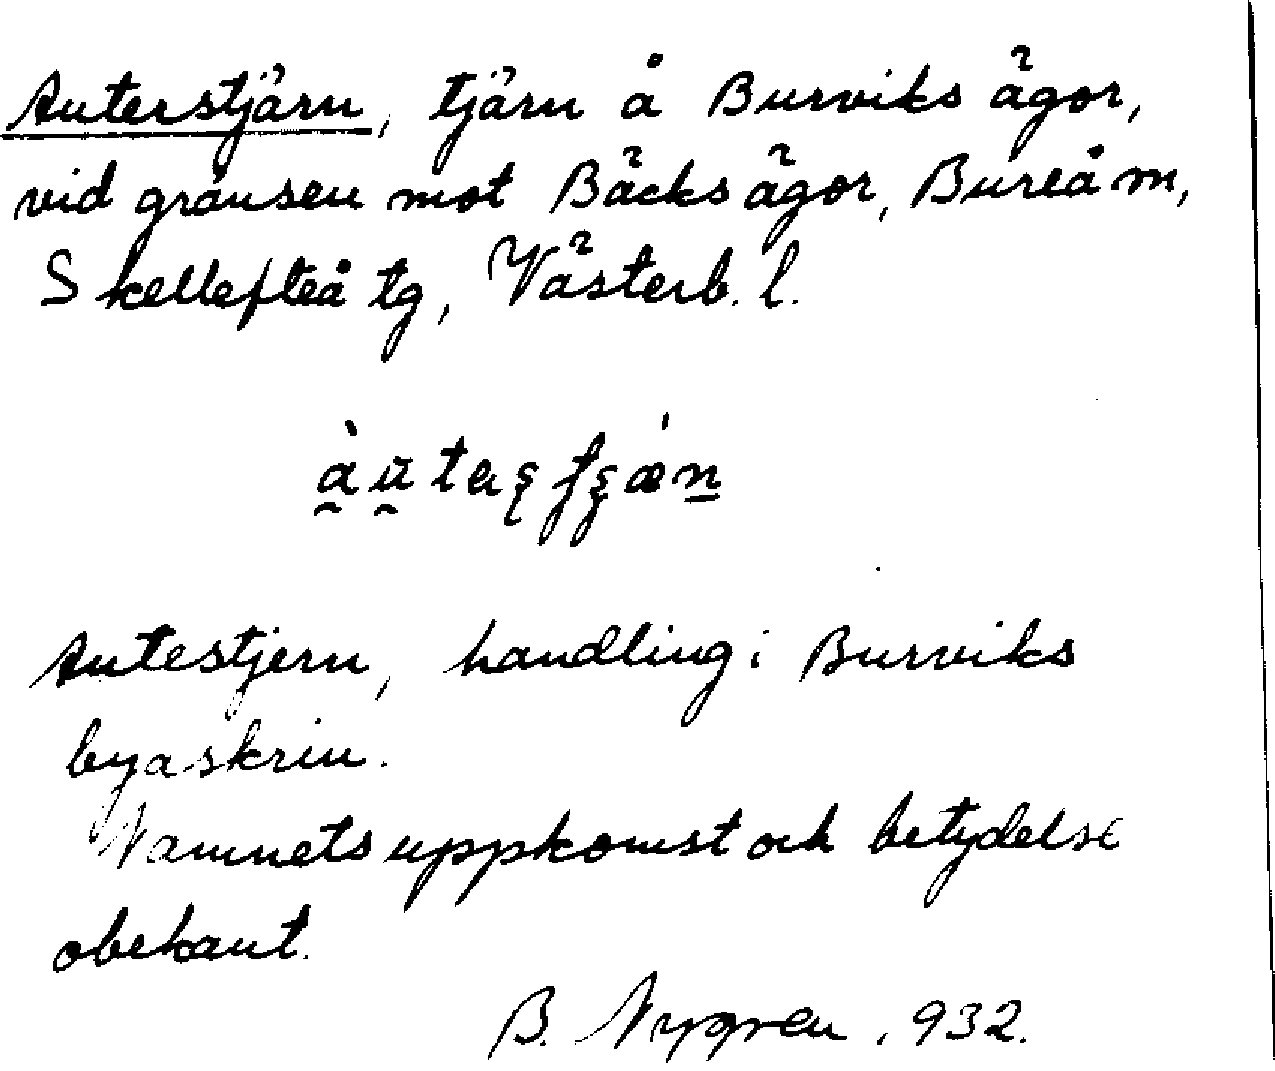 Auterstjärn, tjärn å Burviks ägor,
vid gränsen mot Bäcks ägor, Bureå m,
Skellefteå tg, Västerb. l.
Autestjern, handling i Burviks
byaskrin.
Namnets uppkomst och betydelse
obekant.
B. Nygren. 932.